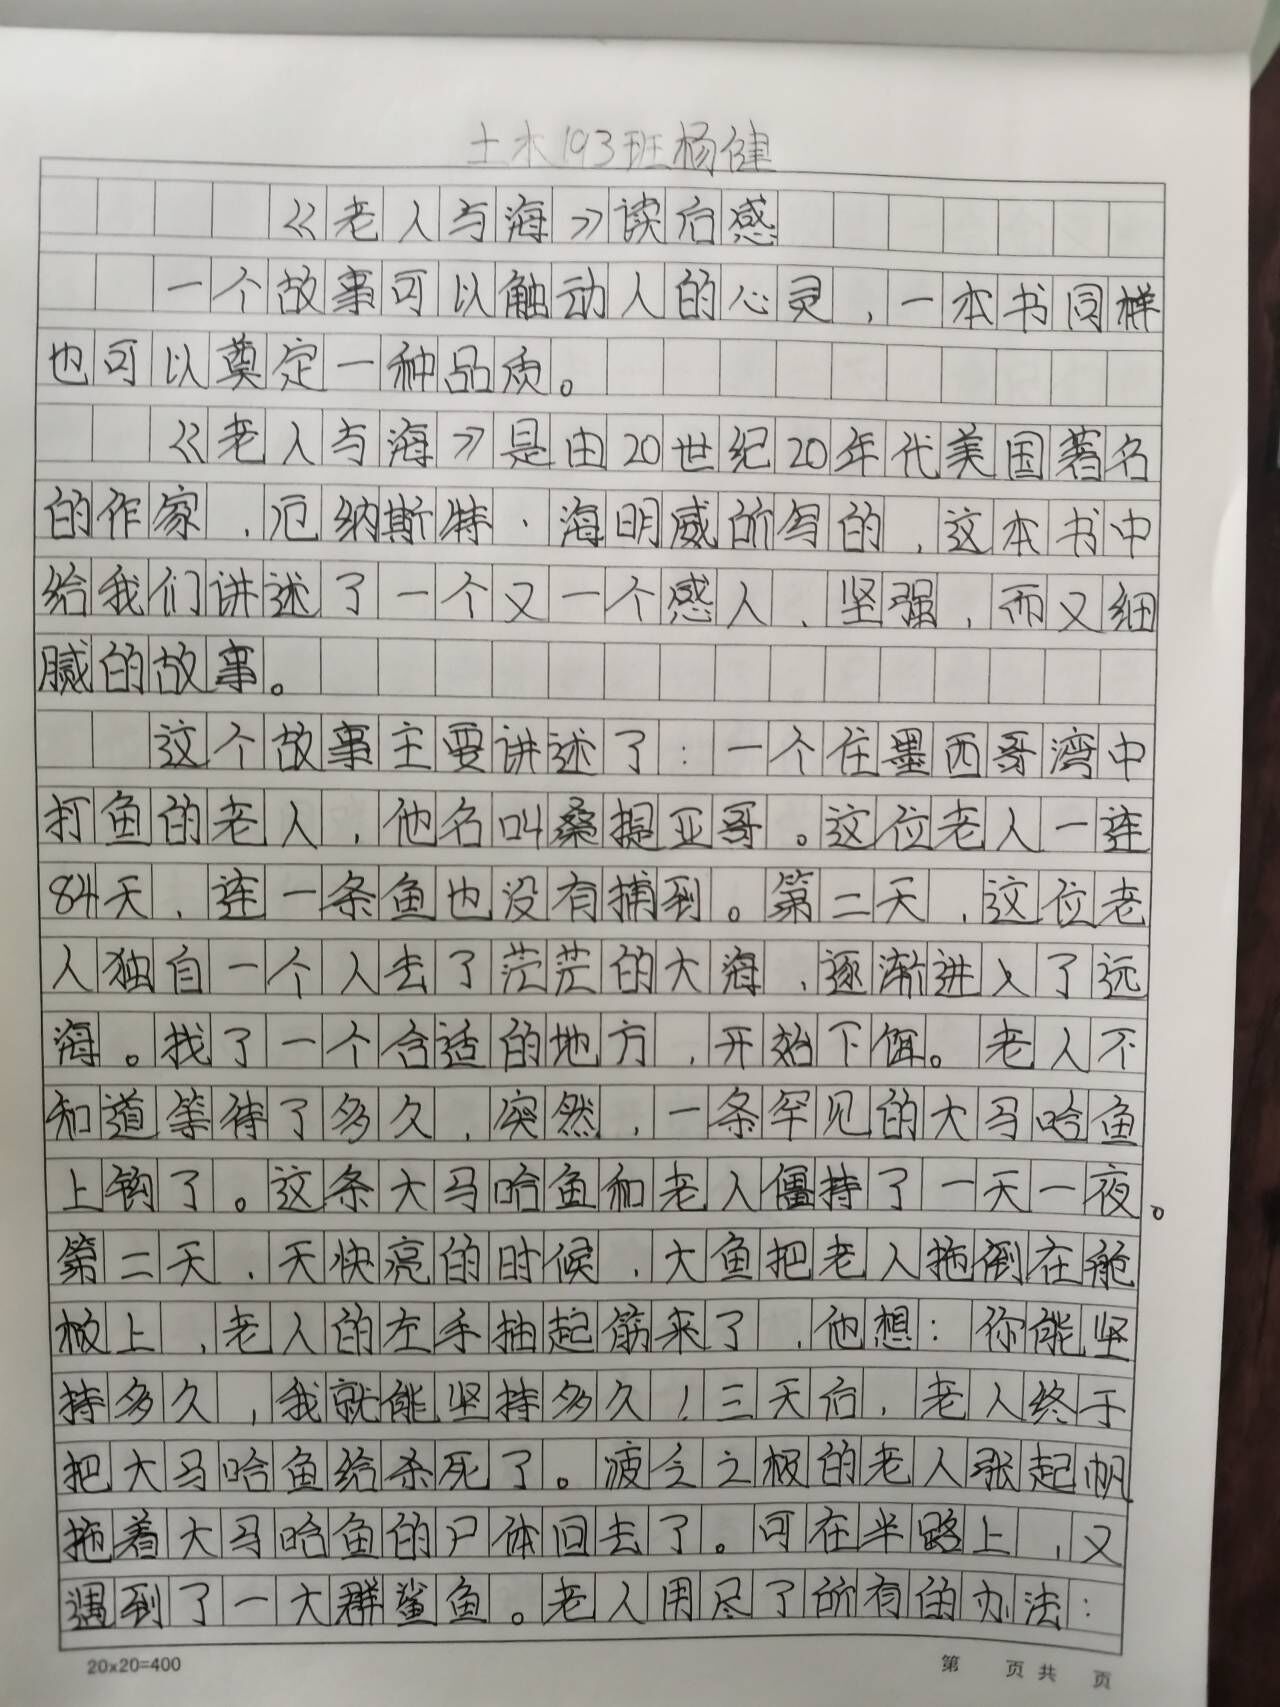 土木193班杨健
《老人与海》读后感
一个故事可以触动人的心灵，一本书同样
也可以奠定一种品质。
《老人与海》是由20世纪20年代美国著名
的作家，厄纳斯特·海明威所写的，这本书中
给我们讲述了一个又一个感人、坚强，而又细
腻的故事。
这个故事主要讲述了：一个住墨西哥湾中
打鱼的老人，他名叫桑提亚哥。这位老人一连
84天，连一条鱼也没有捕到。第二天，这位老
人独自一个人去了茫茫的大海，逐渐进入了远
海。找了一个合适的地方，开始下饵。老人不
知道等待了多久，突然，一条罕见的大马哈鱼
上钩了。这条大马哈鱼和老人僵持了一天一夜。
第二天，天快亮的时候，大鱼把老人拖倒在舱
板上，老人的左手抽起筋来了，他想：你能坚
持多久，我就能坚持多久！三天后，老人终于
把大马哈鱼给杀死了。疲乏之极的老人张起帆
拖着大马哈鱼的尸体回去了。可在半路上，又
遇到了一大群鲨鱼。老人用尽了所有的办法：
20×20=400
第 页 共 页